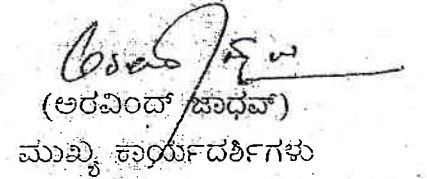 (ಅರವಿಂದ್ ಜಾಧವ್)
ಮುಖ್ಯ ಕಾರ್ಯದರ್ಶಿಗಳು